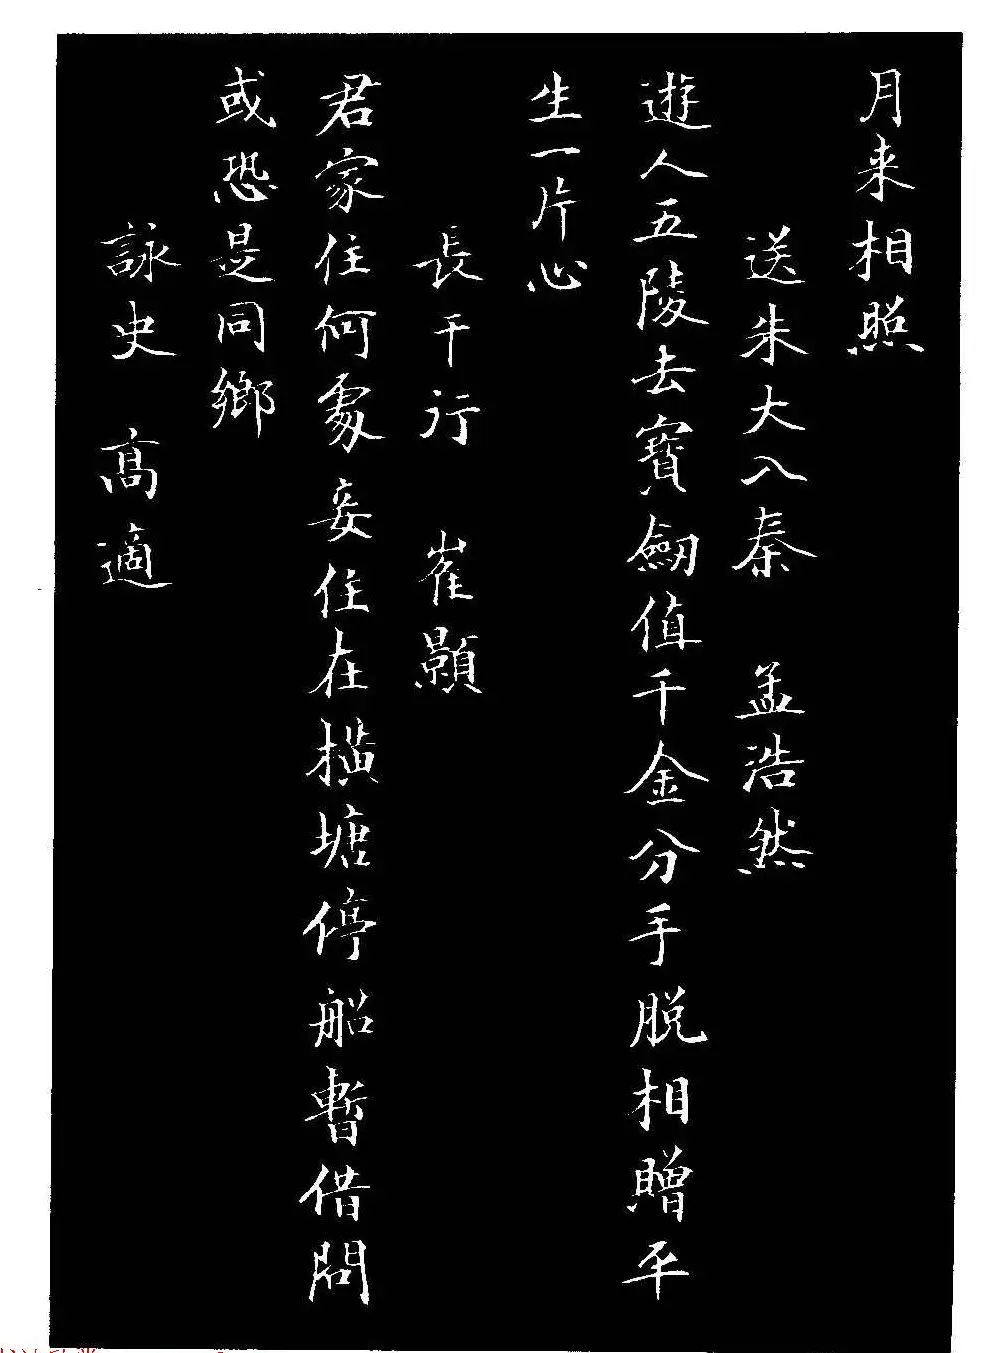 月来相照
送朱大入秦 孟浩然
遊人五陵去寶劒值千金分手脱相贈平
生一片心
長干行 崔顥
君家住何處妾住在橫塘停船暫借問
或恐是同鄉
詠史 高適